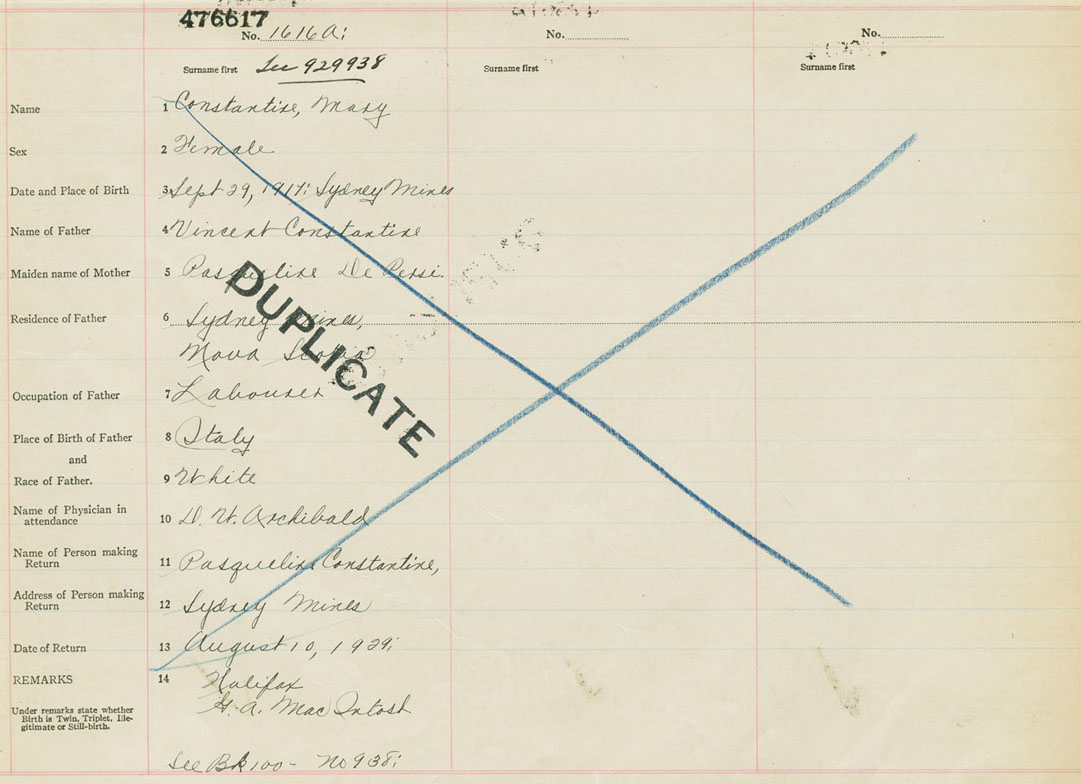 476617
No. 1616A; No. No.
Surname first See 929938 Surname first Surname first
Name 1 Constantine, Mary
Sex 2 Female
Date and Place of Birth 3 Sept 29, 1917: Sydney Mines
Name of Father 4 Vincent Constantine
Maiden name of Mother 5 Pasqueline De Persi.
Residence of Father 6 Sydney Mines,
Nova Scotia
DUPLICATE
Occupation of Father 7 Labourer
Place of Birth of Father 8 Italy
and
Race of Father. 9 White
Name of Physician in
attendance 10 D. W. Archibald
Name of Person making
Return 11 Pasqueline Constantine,
Address of Person making
Return 12 Sydney Mines
Date of Return 13 August 10, 1939;
REMARKS 14 Halifax
G. A. MacIntosh
Under remarks state whether
Birth is Twin, Triplet, Ille-
gitimate or Still-birth.
See Bk 100 - No 938;